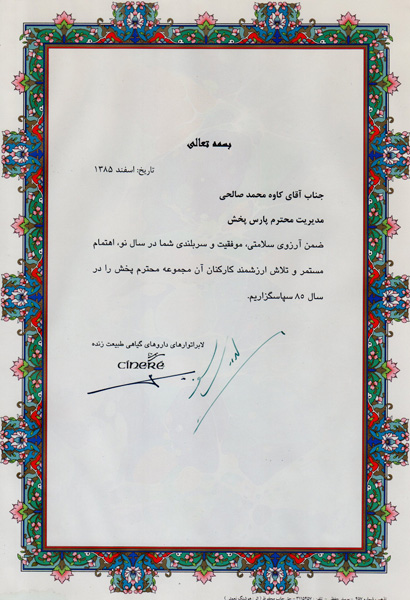 بسمه تعالی
تاریخ: اسفند ۱۳۸۵
جناب آقای کاوه محمد صالحی
مدیریت محترم پارس پخش
ضمن آرزوی سلامتی، موفقیت و سربلندی شما در سال نو، اهتمام
مستمر و تلاش ارزشمند کارکنان آن مجموعه محترم پخش را در
سال ۸۵ سپاسگزاریم.
لابراتوارهای داروهای گیاهی طبیعت زنده
cinere